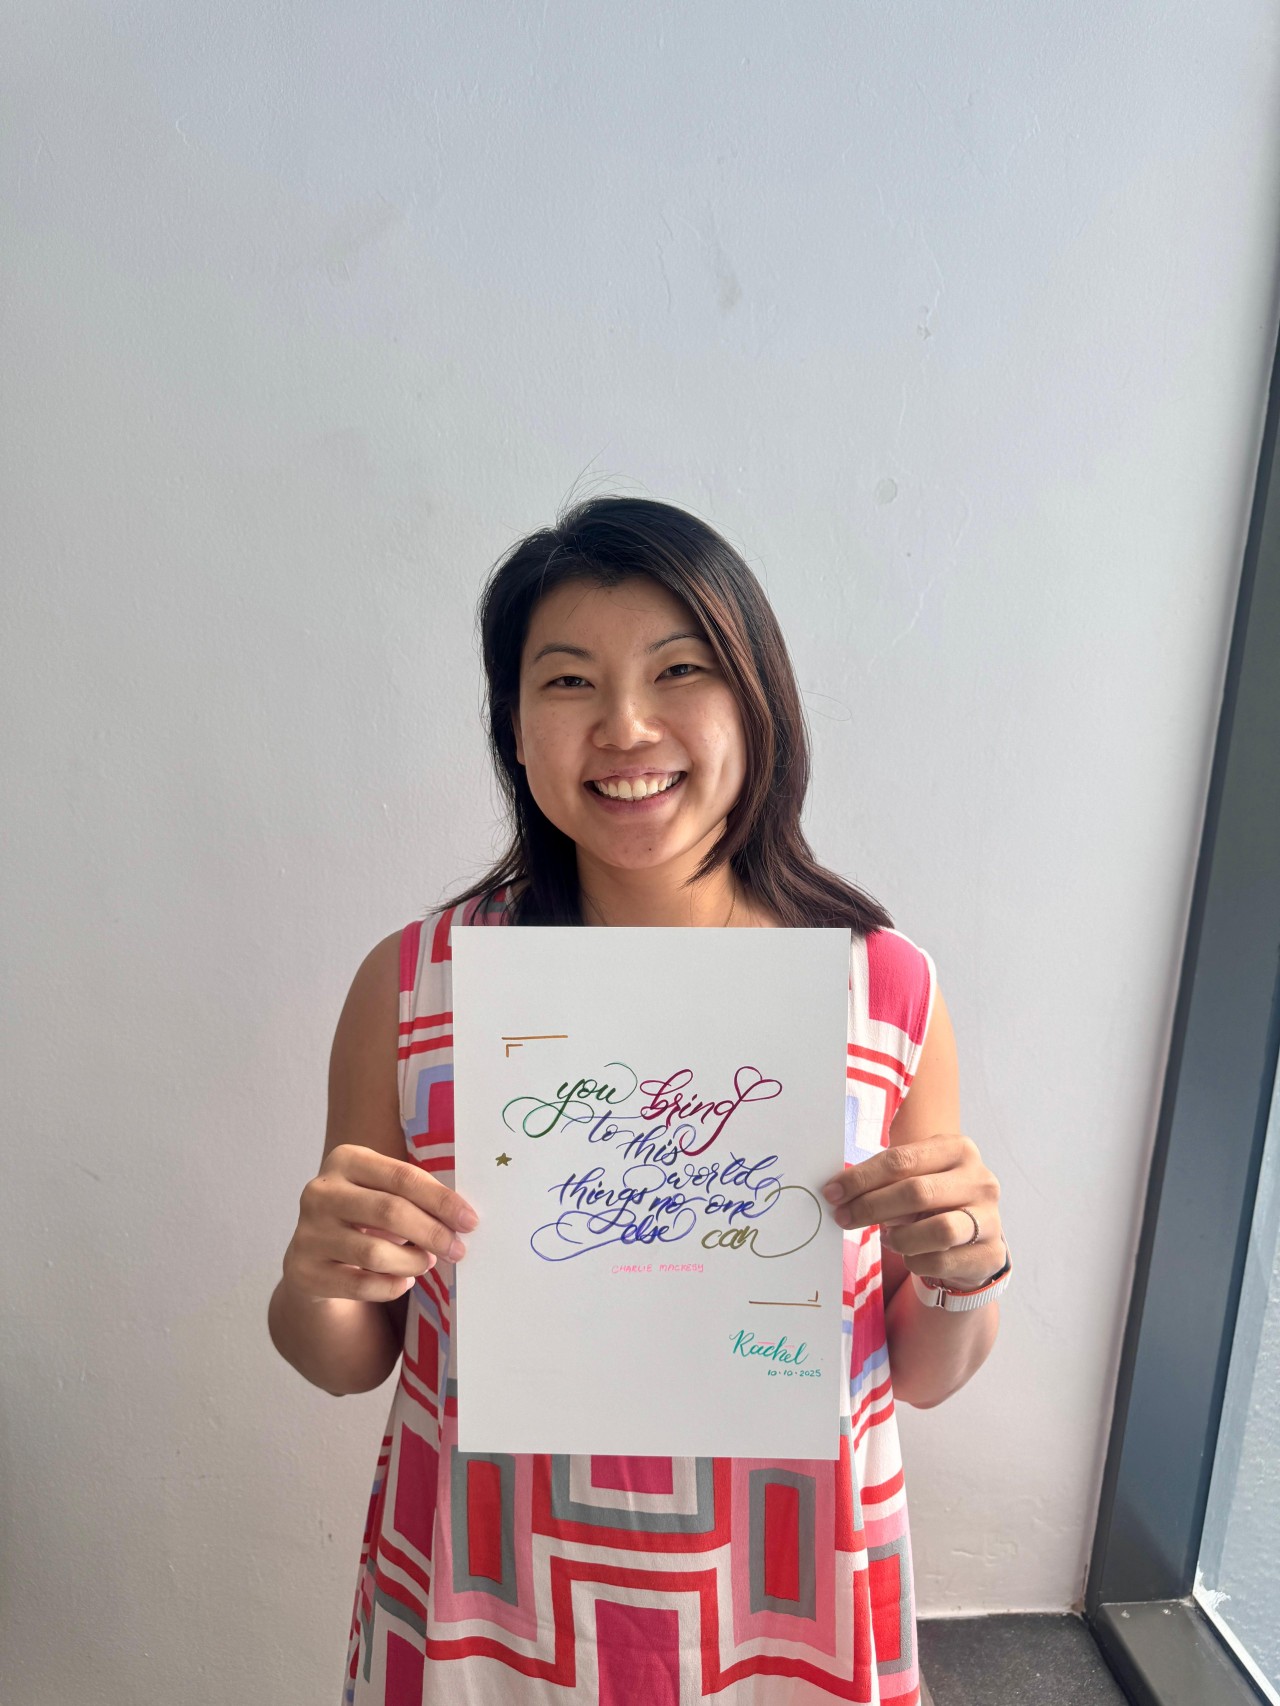 you bring
to this
world
things no one
else can
CHARLIE MACKESY
Rachel
10·10·2025